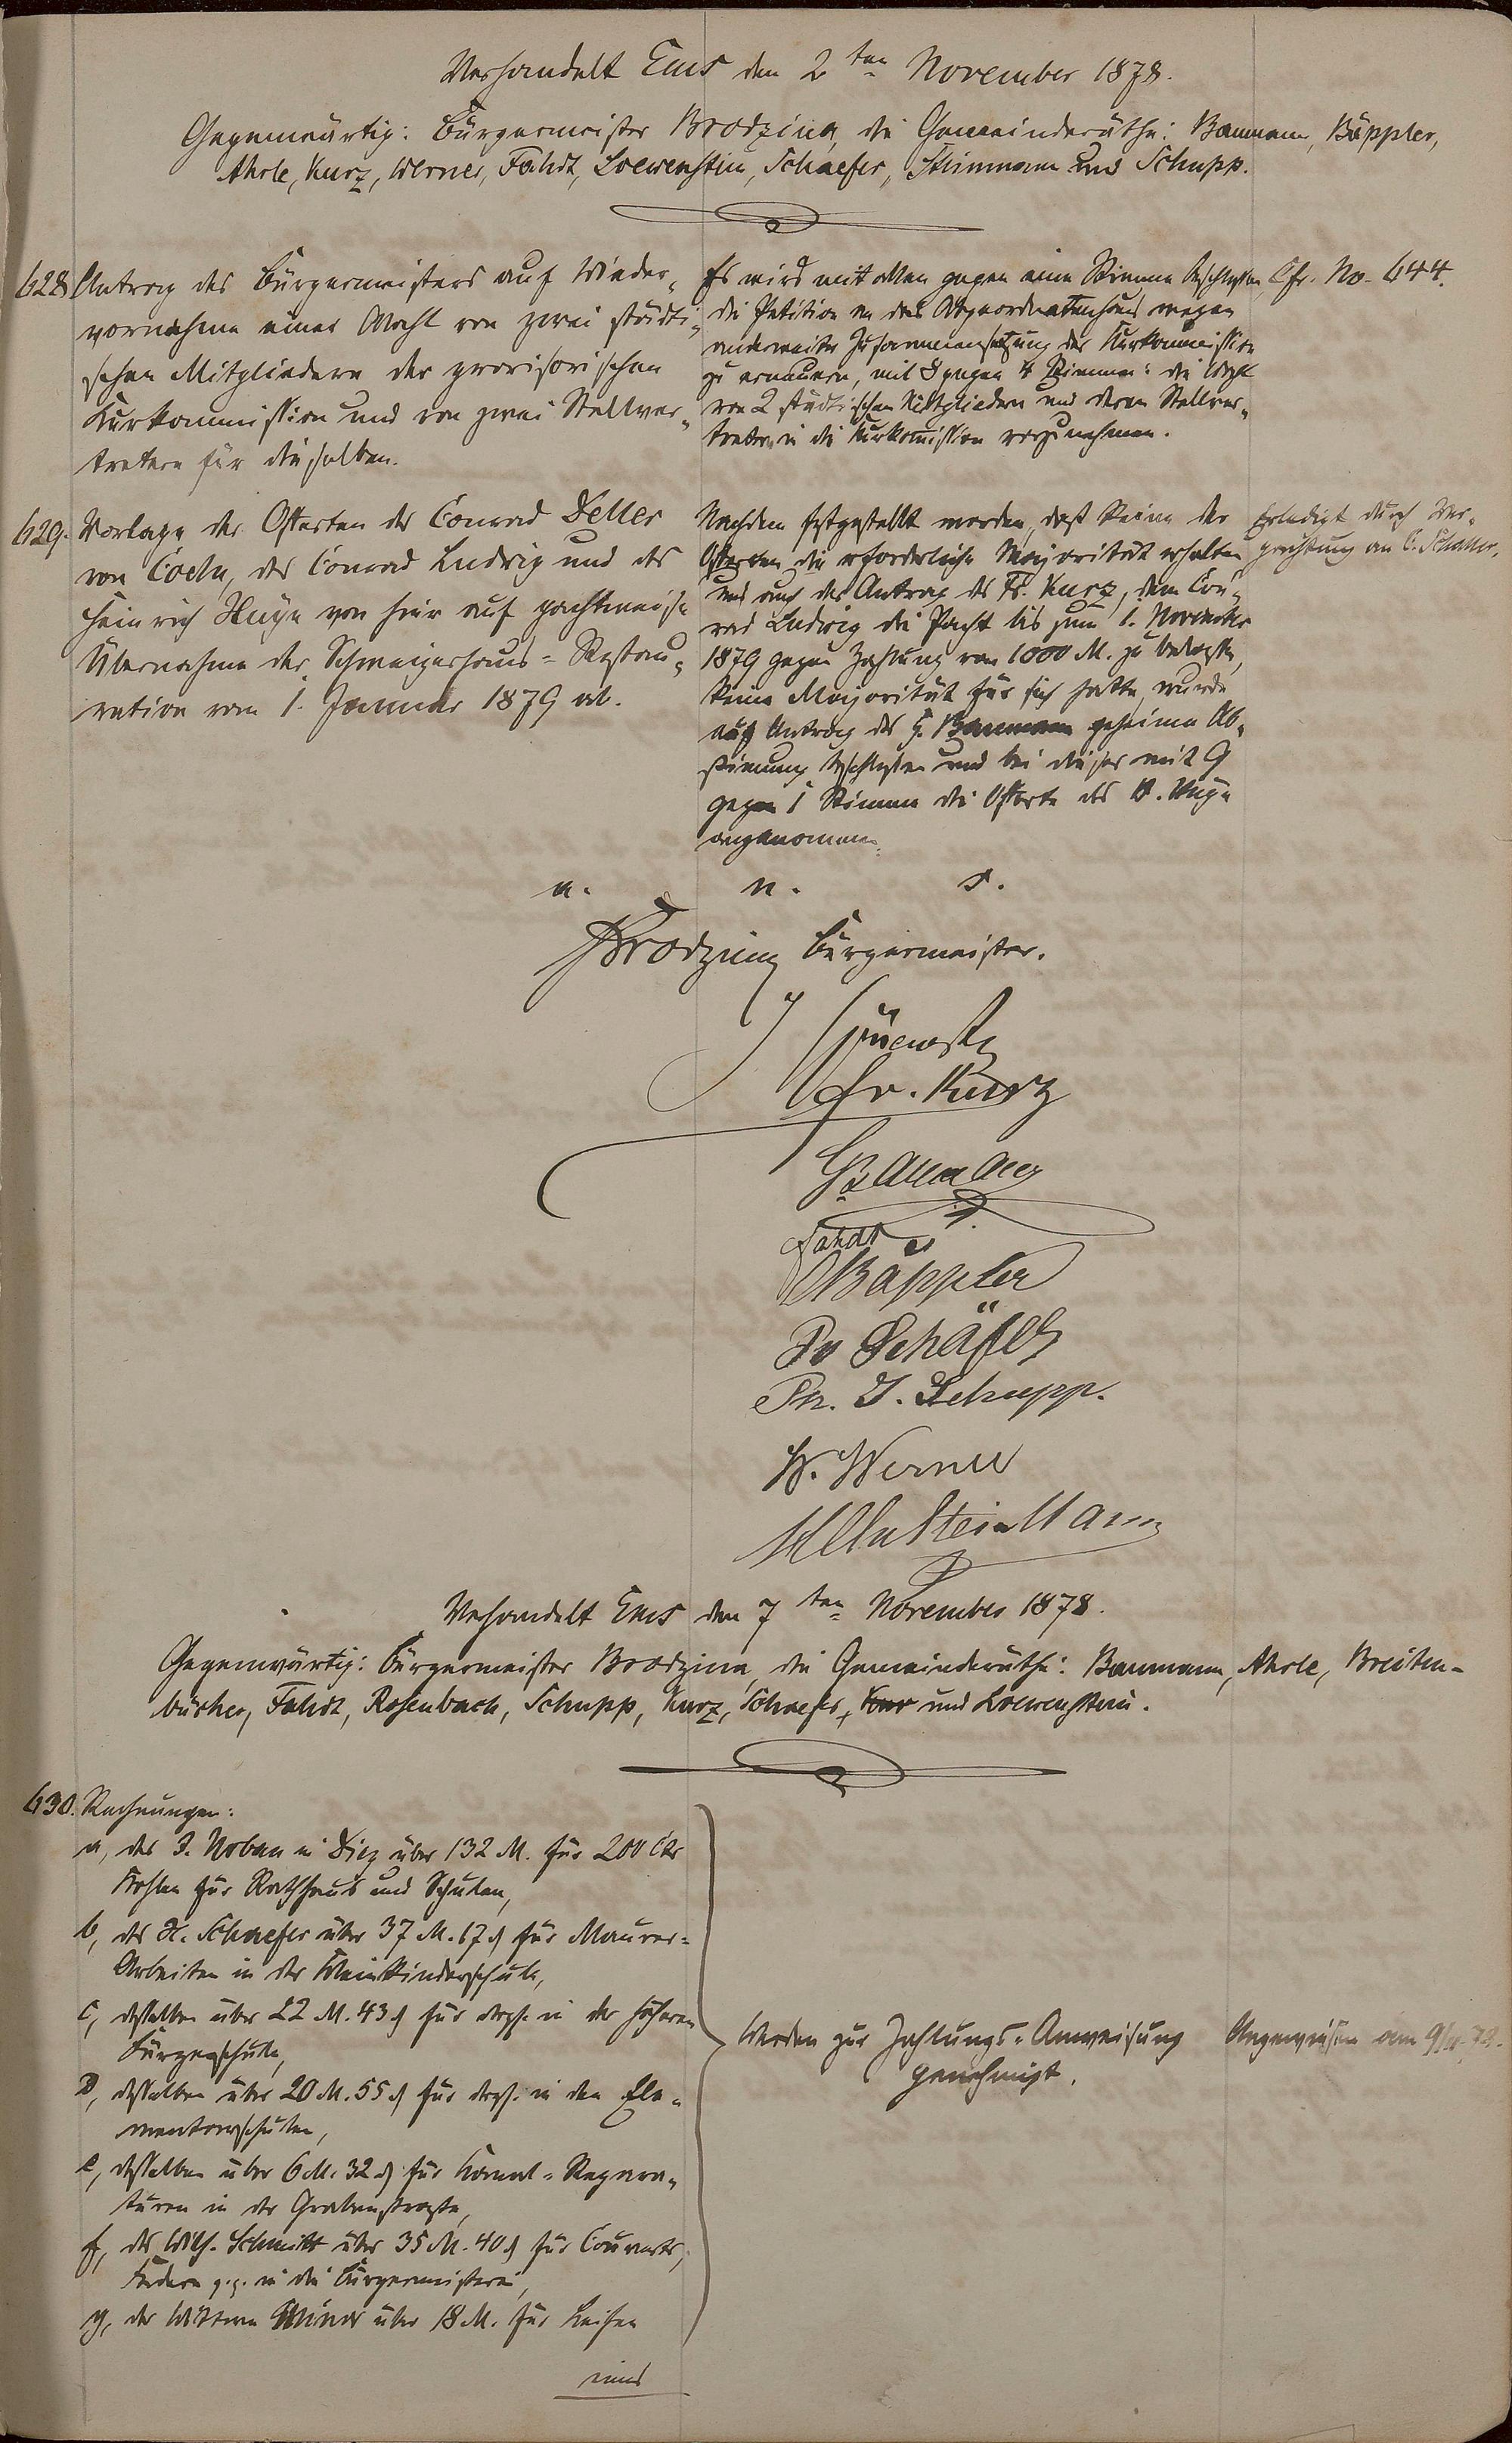 Verhandelt Ems den 2ten November 1878.
Gegenwärtig: Bürgermeister Brodzina, die Gemeinderäthe: Baumann, Bäppler,
Ahrle, Kurz, Werner, Fahdt, Loewenstein, Schaefer, Steinmann und Schupp.
628 Antrag des Bürgermeisters auf Wieder-
vornahme einer Wahl von zwei städti-
schen Mitgliedern der provisorischen
Kurkommission und von zwei Stellver-
tretern für dieselben.
Es wird mit allen gegen eine Stimme beschlossen,
die Petition an das Abgeordnetenhaus wegen
anderweiter Zusammensetzung der Kurkommission
zu erneuern, mit 8 gegen 4 Stimmen: die Wahl
von 2 städtischen Mitgliedern und deren Stellver-
treter in die Kurkomission vorzunehmen.
Cfr. No. 644.
629. Vorlage der Offerten des Conrad Deller
von Coeln, des Conrad Ludwig und des
Heinrich Huyn von hier auf pachtweise
Übernahme der Schweizerhaus-Restau-
ration vom 1. Januar 1879 ab.
Nachdem festgestellt worden, daß keine der
Offerten die erforderliche Majorität erhalten
und auch der Antrag des Fr. Kurz, dem Con-
rad Ludwig die Pacht bis zum 1. November
1879 gegen Zahlung von 1000 M. zu belassen,
keine Majorität für sich hatte, wurde
auf Antrag des H. Baumann geheime Ab-
stimung beschlossen und bei dieser mit 9
gegen 1 Stimme die Offerte des H. Huyn
angenommen.
Erledigt durch Ver-
pachtung an C. Schaller.
u. n. s.
Brodzina Bürgermeister.
Fr. Kurz
Baumann
Fahdt
Bäppler
Schäfer
Ph. J. Schupp.
W. Werner
Steinmann
Verhandelt Ems den 7ten November 1878.
Gegenwärtig: Bürgermeister Brodzina, die Gemeinderäthe: Baumann, Ahrle, Breiten-
bücher, Fahdt, Rosenbach, Schupp, Kurz, Schaefer, und Loewenstein.
630. Rechnungen:
a, des J. Urban in Diez über 132 M. für 200 Ctr
Kohlen für Rathhaus und Schulen,
b, des H. Schaefer über 37 M. 17 ₰ für Maurer-
Arbeiten in der Kleinkinderschule,
c, desselben über 22 M. 43 ₰ für dergl. in der höheren
Bürgerschule,
d, desselben über 20 M. 55 ₰ für dergl. in den Ele-
mentarschulen,
e, desselben über 6 M. 32 ₰ für Kanal-Repara-
turen in der Grabenstraße,
f, des Wilh. Schmitt über 35 M. 40 ₰ für Couverts,
Federn p.p. in die Bürgermeisterei,
g, der Wittwe über 18 M. für Leihen
eines
Werden zur Zahlungs-Anweisung
genehmigt.
Angewiesen am 9/11.78.